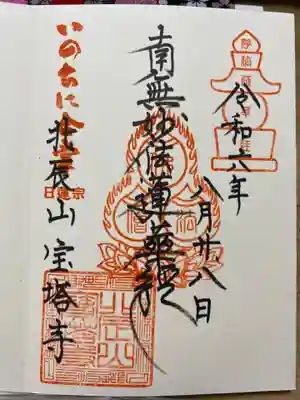 令和六年
八月廿八日
南無妙法蓮華経
いのちに合掌
日蓮宗
北辰山 宝塔寺